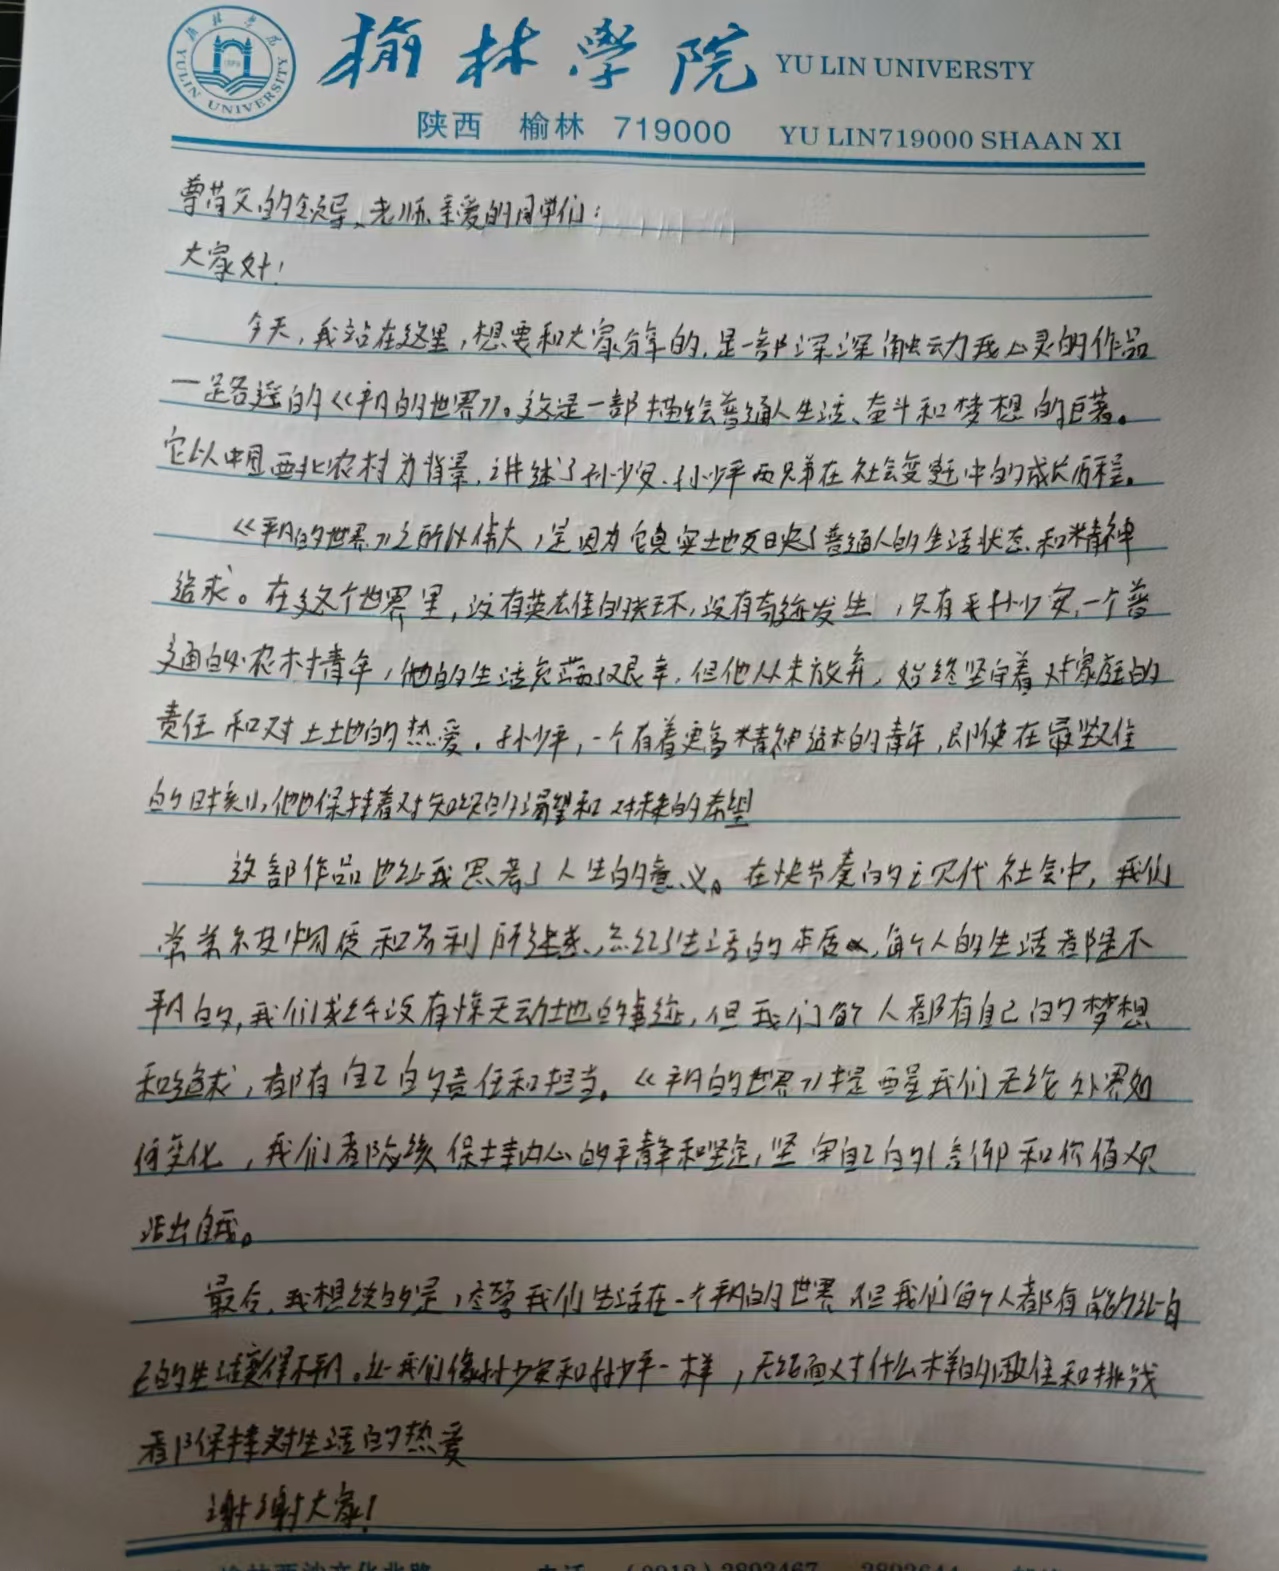 榆林学院 YU LIN UNIVERSTY
YULIN UNIVERSITY
陕西 榆林 719000 YU LIN719000 SHAAN XI
尊敬的领导、老师、亲爱的同学们:
大家好!
今天,我站在这里,想要和大家分享的,是一部深深触动我心灵的作品
一路遥的《平凡的世界》。这是一部描绘普通人生活、奋斗和梦想的巨著。
它以中国西北农村为背景,讲述了孙少安、孙少平两兄弟在社会变迁中的成长历程。
《平凡的世界》之所以伟大,是因为它真实地反映了普通人的生活状态和精神
追求。在这个世界里,没有英雄的,没有奇迹发生,只有孙少安,一个普
通的农村青年,他的生活充满艰辛,但他从未放弃,始终坚守着对家庭的
责任和对土地的热爱。孙少平,一个有着更高精神追求的青年,即使在最艰难
的时刻,他也保持着对知识的渴望和对未来的希望
这部作品也让我思考了人生的意义。在快节奏的现代社会中,我们
常常被物质和名利所迷惑、忘记了生活的本质,每个人的生活都是不
平凡的,我们或许没有惊天动地的事迹,但我们每个人都有自己的梦想
和追求,都有自己的责任和担当。《平凡的世界》提醒我们无论外界如
何变化,我们都应该保持内心的平静和坚定,坚守自己的信仰和价值观
活出自我。
最后,我想说的是,尽管我们生活在一个平凡的世界,但我们每个人都有能力让自
己的生活变得不平凡。让我们像孙少安和孙少平一样,无论面对什么样的困难和挑战
都保持对生活的热爱
谢谢大家!